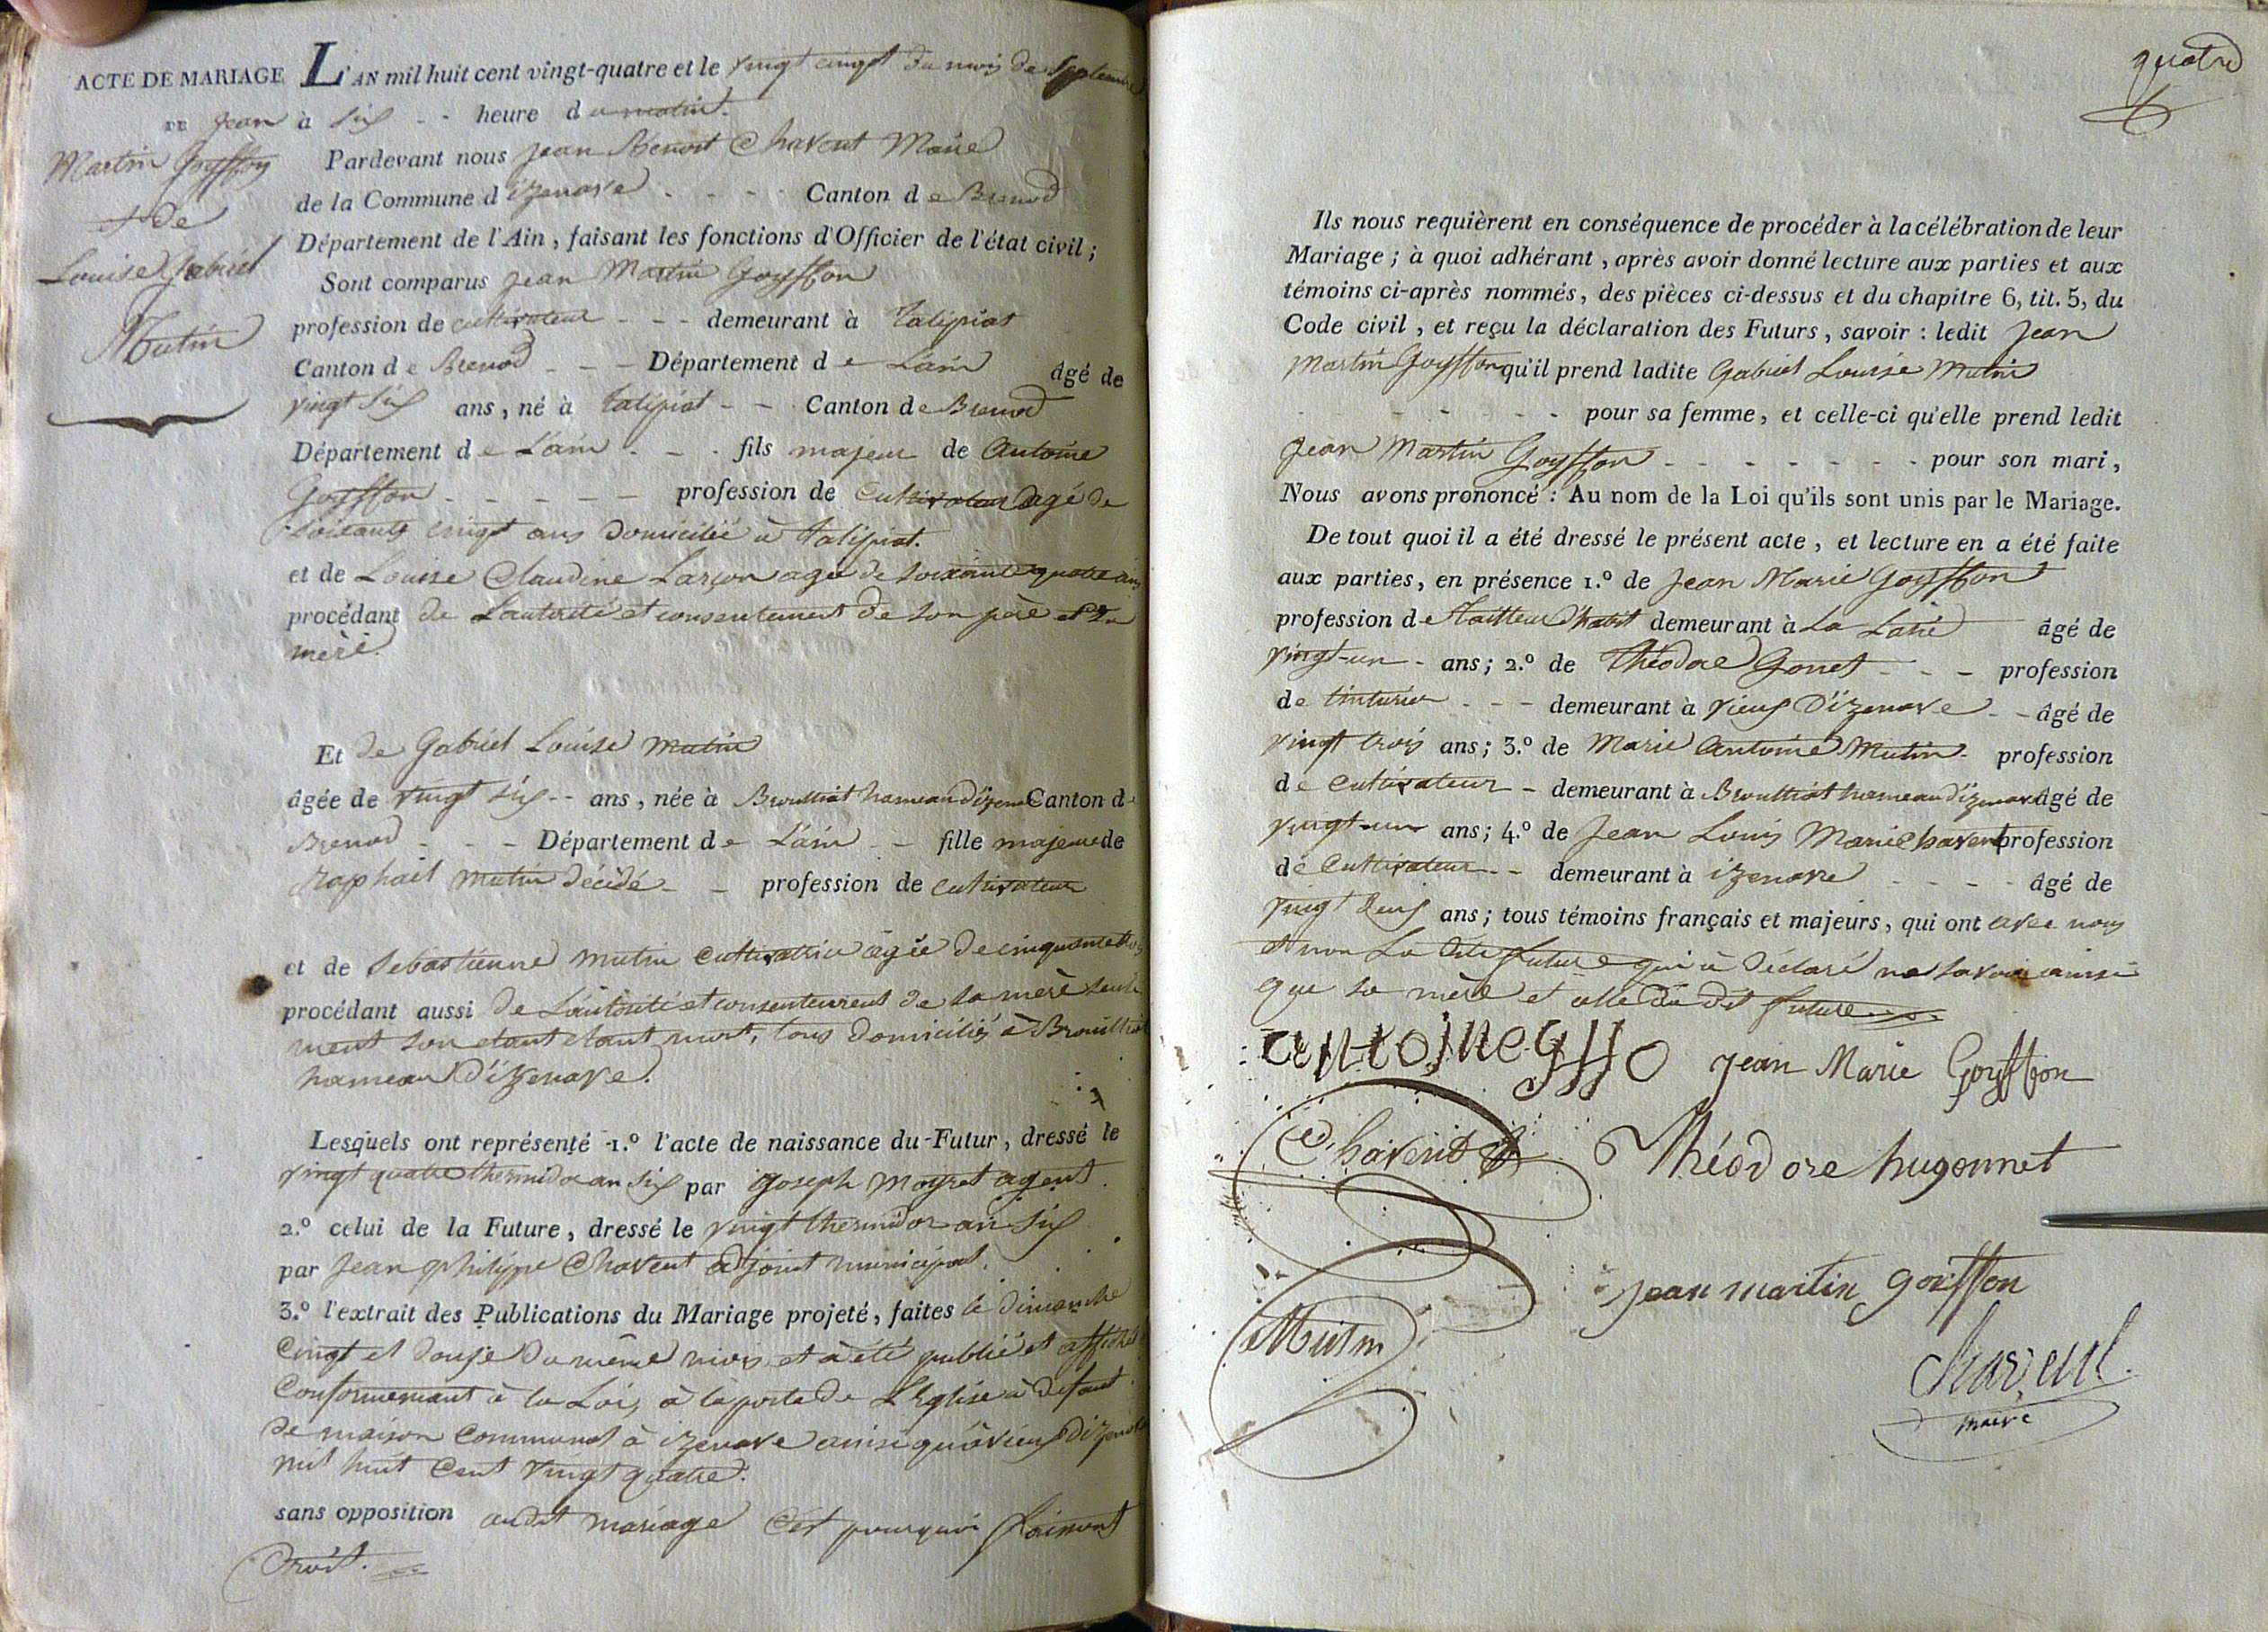 ACTE DE MARIAGE
DE Jean
Martin Goyffon
et de
Louise Gabriel
Mutin
L'AN mil huit cent vingt-quatre et le vingt cinqt du mois de Septembre
à six - - heure du matin.
Pardevant nous Jean Benoit Chavent Maire
de la Commune d'izenave - - - Canton de Brenod
Département de l'Ain, faisant les fonctions d'Officier de l'état civil;
Sont comparus Jean Martin Goyffon
profession de cultivateur - - - demeurant à talipiat
Canton de Brenod - - - Département de L'ain âgé de
vingt six ans, né à talipiat - - Canton de Brenod
Département de L'ain - - - fils majeur de Antoine
Goyffon - - - - - profession de Cultivateur agé de
soixante cinqt ans domicilié à talipiat.
et de Louise Claudine Larçon agée de soixante quatre ans
procédant de L'autorité et consentement de son père et Sa
mère.
Et de Gabriel Louise Mutin
âgée de vingt six - - ans, née à Brouilliat hameau d'izenave Canton de
Brenod - - - Département de L'ain - - fille majeure de
Raphaël Mutin décidé - - profession de cultivateur
et de Sebastienne Mutin Cultivatrice agée de cinquante
procédant aussi de L'autorité et consentement de sa mère seule
ment son etant etant mort, tous domiciliés à Brouilliat
hameau D'izenave.
Lesquels ont représenté 1.º l'acte de naissance du Futur, dressé le
vingt quatre thermidor an six par joseph moyret agent.
2.º celui de la Future, dressé le vingt thermidor an six
par Jean philippe Chavent adjoint municipal.
3.º l'extrait des Publications du Mariage projeté, faites le dimanche
Cinqt et douze du même mois et a été publié et affiché
Conformemant à la Loi, à la porte de L'Eglise à defaut
de maison Communal à izenave ainsi qu'à vieux d'izenave
mil huit Cent vingt quatre.
sans opposition audit mariage C'est pourquoi faisant
Droit.
quatre
Ils nous requièrent en conséquence de procéder à la célébration de leur
Mariage; à quoi adhérant, après avoir donné lecture aux parties et aux
témoins ci-après nommés, des pièces ci-dessus et du chapitre 6, tit. 5, du
Code civil, et reçu la déclaration des Futurs, savoir: ledit Jean
Martin Goyffon qu'il prend ladite Gabriel Louise Mutin
- - - - - - pour sa femme, et celle-ci qu'elle prend ledit
Jean Martin Goyffon - - - - - - - pour son mari,
Nous avons prononcé: Au nom de la Loi qu'ils sont unis par le Mariage.
De tout quoi il a été dressé le présent acte, et lecture en a été faite
aux parties, en présence 1.º de Jean Marie Goyffon
profession de tailleur d'habit demeurant à La Latie âgé de
vingt-un - ans; 2.º de théodore Gonet - - - profession
de tinturier - - - demeurant à vieux D'izenave - - âgé de
vingt trois ans; 3.º de Marie Antoine Mutin - profession
de Cultivateur - demeurant à Brouilliat hameau d'izenave âgé de
vingt-un ans; 4.º de Jean Louis Marie Chavent profession
de Cultivateur - - demeurant à izenave - - - - âgé de
vingt deux ans; tous témoins français et majeurs, qui ont avec nous
et non La dite future qui a déclaré ne savoir ainsi
que sa mère et celle du dit future
antoine
Jean Marie Goyffon
Chavent
Théodore hugonnet
jean martin goiffon
Mutin
Chavent
maire